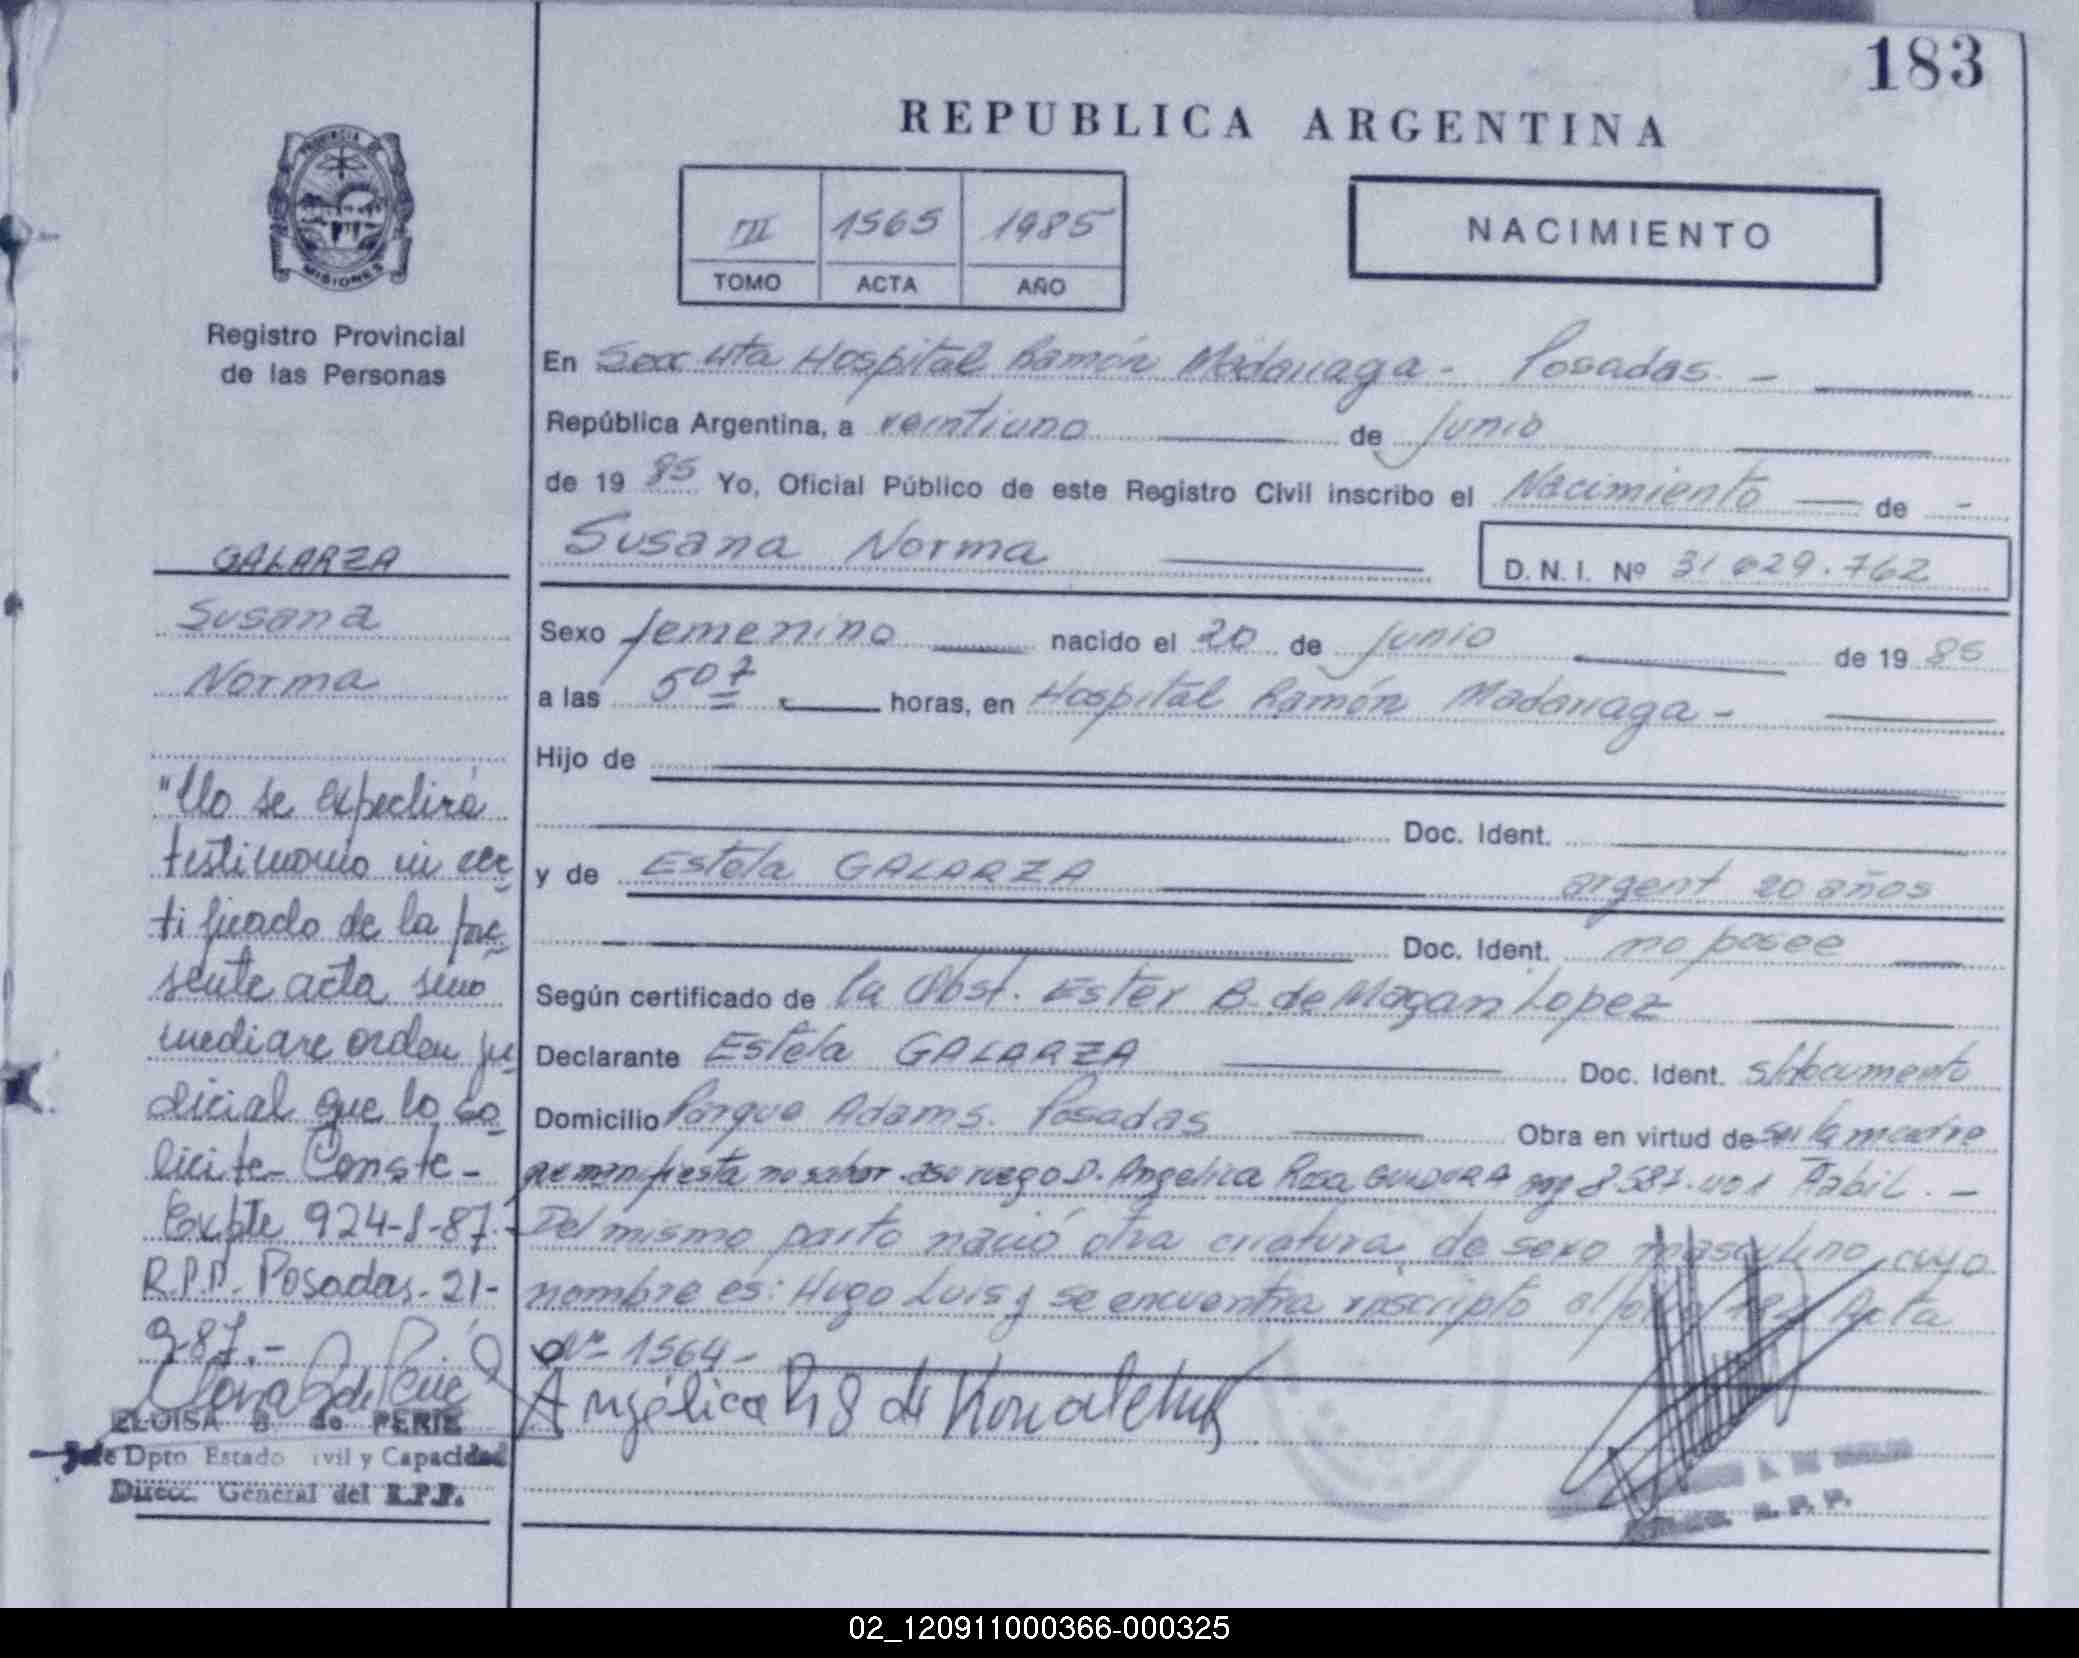 183
REPUBLICA ARGENTINA
III 1565 1985
TOMO ACTA AÑO
NACIMIENTO
PROVINCIA DE MISIONES
Registro Provincial
de las Personas
En Secc 4ta Hospital Ramón Madariaga - Posadas -
República Argentina, a veintiuno de junio
de 19 85 Yo, Oficial Público de este Registro Civil inscribo el Nacimiento de -
Susana Norma
D.N.I. Nº 31.029.762
GALARZA
Susana
Norma
Sexo femenino nacido el 20 de junio de 19 85
a las 5 07 horas, en Hospital Ramón Madariaga -
Hijo de
Doc. Ident.
y de Estela GALARZA argent 20 años
Doc. Ident. no posee
Según certificado de la Obst. Ester B. de Magan Lopez
Declarante Estela GALARZA Doc. Ident. s/documento
Domicilio Parque Adams. Posadas Obra en virtud de ser la madre
que manifiesta no saber a su ruego D. Angelica Rosa 8.587.401 Habil. -
Del mismo parto nació otra criatura de sexo masculino, cuyo
nombre es: Hugo Luis y se encuentra inscripto al folio 182 Acta
Nº 1564 -
Angélica R S de
"No se expedirá
testimonio ni cer-
tificado de la pre-
sente acta sino
mediare orden ju-
dicial que lo so-
licite- Conste-
Expte 924-S-87.-
R.P.P. Posadas. 21-
9-87.-
ELOISA B de PERIE
Jefe Dpto Estado ivil y Capacidad
Direcc. General del R.P.P.
R. P. P.
02_120911000366-000325